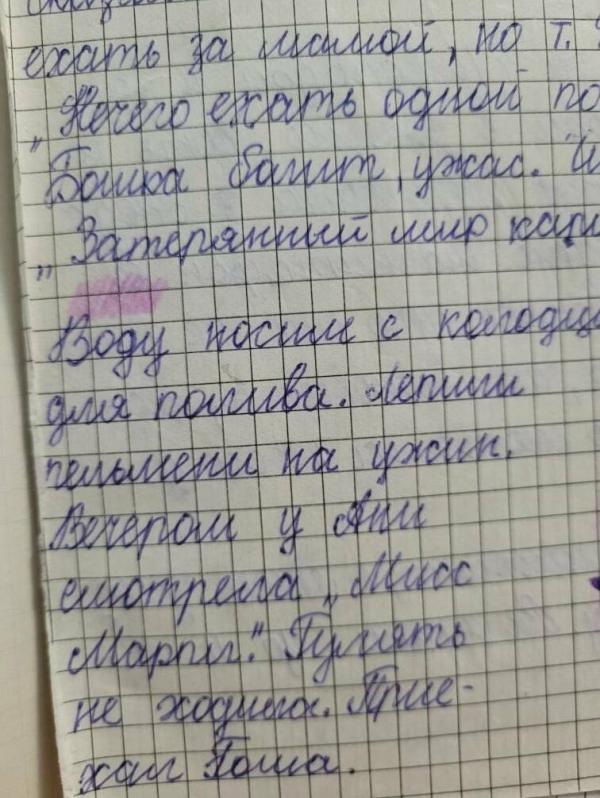 ехать за мамой, но т.
„Нечего ехать одной по
Башка болит, ужас.
„Затерянный мир капи
Воду носим с колодца
для полива. Лепили
пельмени на ужин.
Вечером у Ани
смотрела „Мисс
Марпл". Гулять
не ходила. Прие-
хал Гоша.